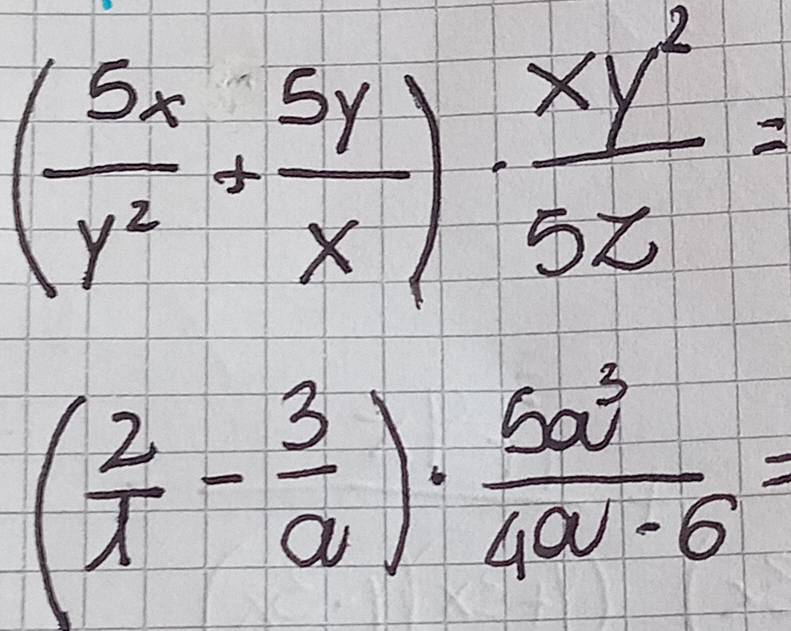 (5x/y² + 5y/x) · xy²/5z =
(2/1 - 3/a) · 5a³/4a - 6 =